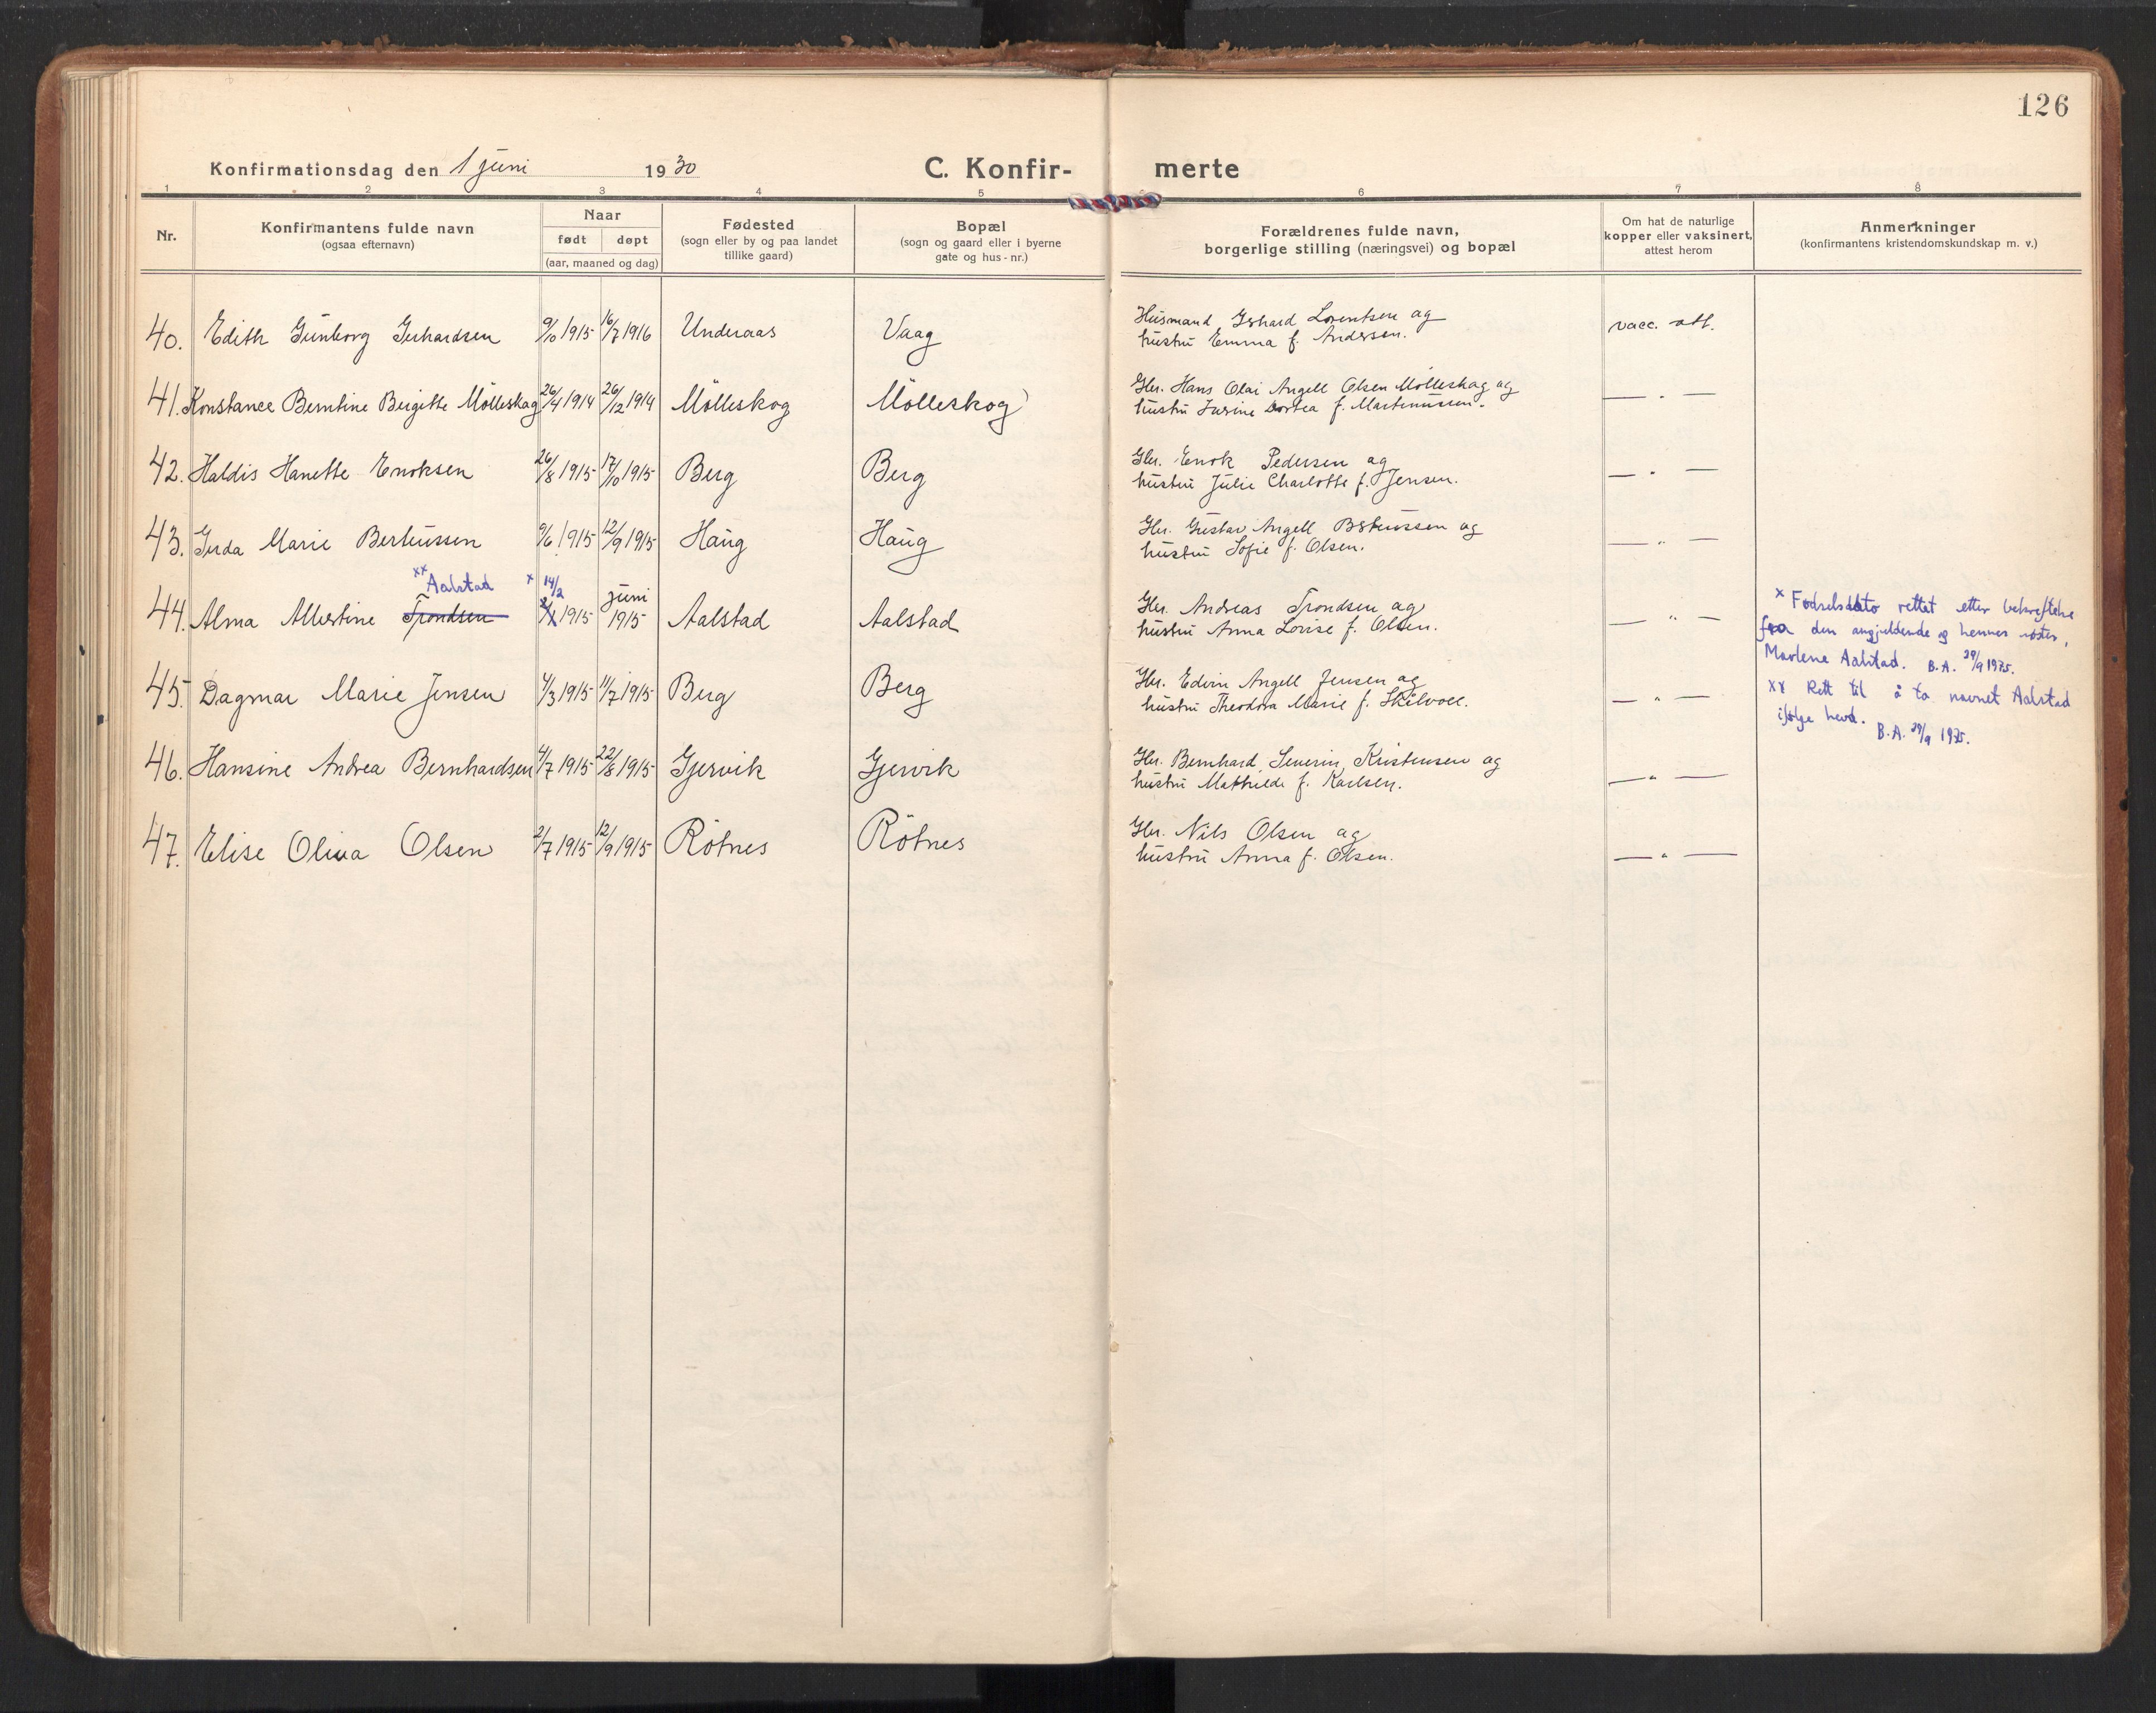 126
Konfirmationsdag den 1 juni 1930
C. Konfir- merte
1 2 3 4 5 6 7 8
Nr.
Konfirmantens fulde navn
(ogsaa efternavn)
Naar
født døpt
(aar, maaned og dag)
Fødested
(sogn eller by og paa landet
tillike gaard)
Bopæl
(sogn og gaard eller i byerne
gate og hus-nr.)
Forældrenes fulde navn,
borgerlige stilling (næringsvei) og bopæl
Om hat de naturlige
kopper eller vaksinert,
attest herom
Anmerkninger
(konfirmantens kristendomskundskap m. v.)
40. Edith Gunborg Gerhardsen 9/10 1915 16/7 1916 Underaas Vaag
Husmand Gerhard Lorentsen og
hustru Emma f. Andersen.
vacc. att.
41. Konstance Berntine Birgitte Mölleskog 26/4 1914 26/12 1914 Mölleskog Mölleskog
Gbr. Hans Olai Angell Olsen Mölleskog og
hustru Dortea f. Martinussen.
— " —
42. Haldis Hanette Enoksen 26/8 1915 17/10 1915 Berg Berg
Gbr. Enok Pedersen og
hustru Julie Charlotte f. Jensen.
— " —
43. Gerda Marie Berteussen 9/6 1915 12/9 1915 Haug Haug
Gbr. Gustav Angell Berteussen og
hustru Sofie f. Olsen.
— " —
xx Aalstad x 14/2
44. Alma Albertine Trondsen 1915 juni 1915 Aalstad Aalstad
Gbr. Andreas Trondsen og
hustru Anna Lovise f. Olsen.
— " —
x Fødselsdato rettet etter bekreftelse
fra den angjeldende og hennes søster,
Marlene Aalstad. B.A. 29/9 1975.
xx Rett til å ta navnet Aalstad
ifølge hevd.
B.A. 29/9 1975.
45. Dagmar Marie Jensen 4/3 1915 11/7 1915 Berg Berg
Gbr. Edvin Angell Jensen og
hustru Theodora Marie f. Skilvoll.
— " —
46. Hansine Andrea Bernhardsen 4/7 1915 22/8 1915 Gjervik Gjervik
Gbr. Bernhard Severin Kristensen og
hustru Mathilde f. Karlsen.
— " —
47. Elise Oliva Olsen 2/7 1915 12/9 1915 Rötnes Rötnes
Gbr. Nils Olsen og
hustru Anna f. Olsen.
— " —